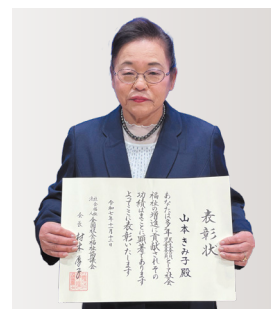 表彰状
山本きみ子殿
あなたは多年
福祉の増進に貢献されその
功績はまことに顕著であります
よってここに表彰いたします
令和七年十一月十三日
全国社会福祉協議会
会長 村木厚子